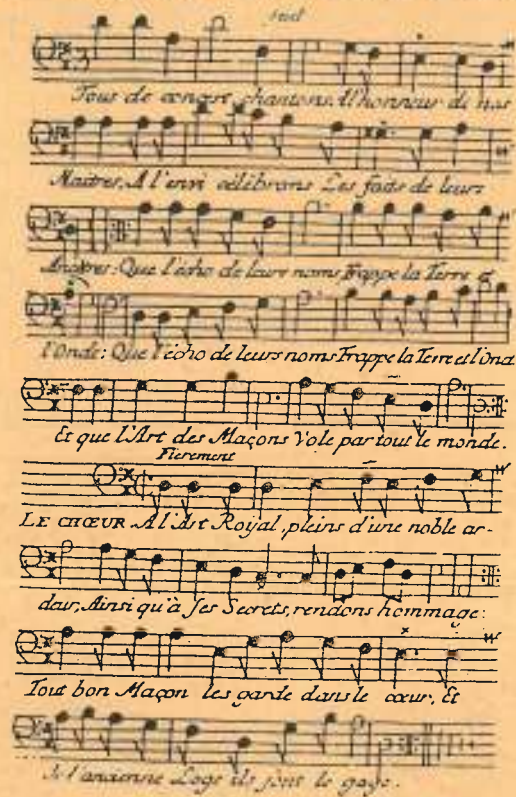 Seul
Tous de concert chantons, A l'honneur de nos
Maitres, A l'envi célébrons Les faits de leurs
Ancêtres: Que l'écho de leurs noms, Frappe la Terre et
l'Onde: Que l'écho de leurs noms Frappe la Terre et l'Ond
Et que l'Art des Maçons Vole par tout le monde.
Fierement
LE CHŒUR A l'Art Royal, pleins d'une noble ar-
deur, Ainsi qu'à ses Secrets, rendons hommage:
Tout bon Maçon les garde dans le cœur, Et
de l'ancienne Loge ils sont le gage.